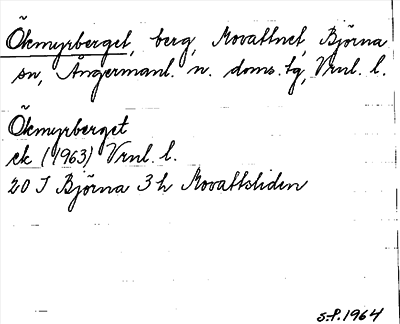 Ökmyrberget, berg, Movattnet, Björna
sn, Ångermanl. n. doms. tg, Vrnl. l.
Ökmyrberget
ek (1963) Vrnl. l.
20 I Björna 3 h Movattsliden
S.P. 1964